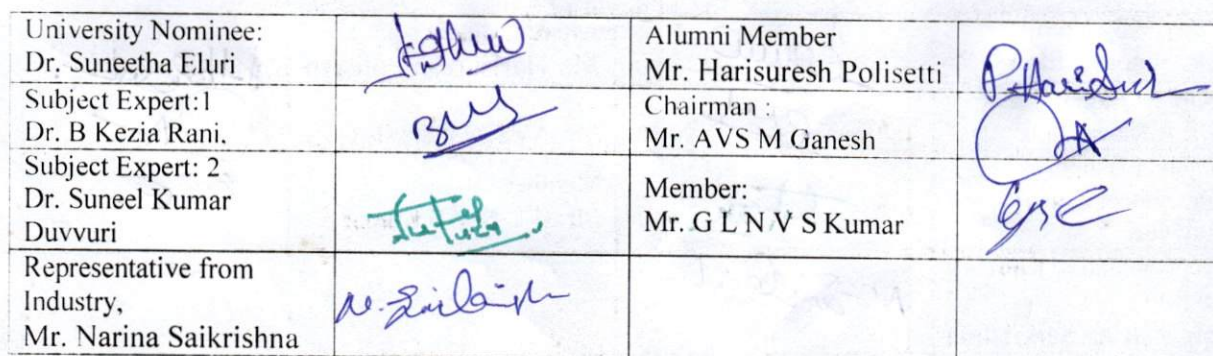 University Nominee:
Dr. Suneetha Eluri
Alumni Member
Mr. Harisuresh Polisetti
P. Harisuresh
Subject Expert:1
Dr. B Kezia Rani,
Chairman :
Mr. AVS M Ganesh
Subject Expert: 2
Dr. Suneel Kumar
Duvvuri
Member:
Mr. G L N V S Kumar
Representative from
Industry,
Mr. Narina Saikrishna